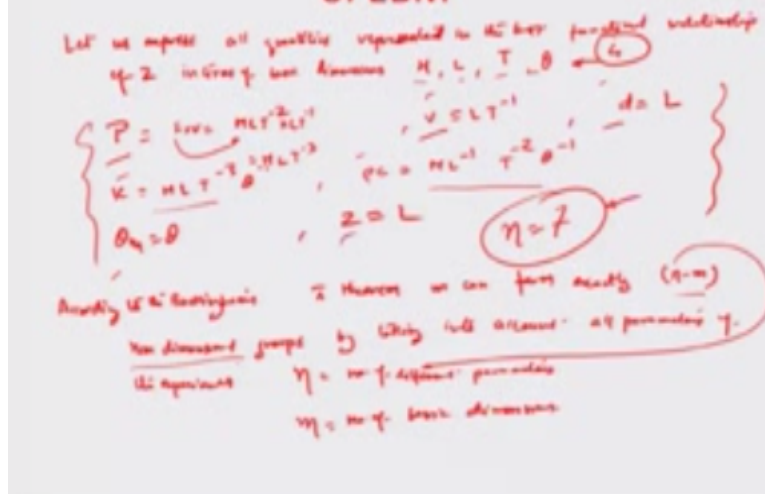 Let us express all quantities represented in the functional relationship
of Z in terms of basic dimensions M, L, T, θ 4
P = MLT⁻² × LT⁻¹ , V = LT⁻¹ , d = L
K = MLT⁻³ θ⁻¹ , ρc = ML⁻¹ T⁻² θ⁻¹
θm = θ , Z = L η = 7
According to the Buckingham's π theorem we can form exactly (η-m)
Non dimensional groups by taking into account all parameters of
the experiment η = no of different parameters
m = no of basic dimensions